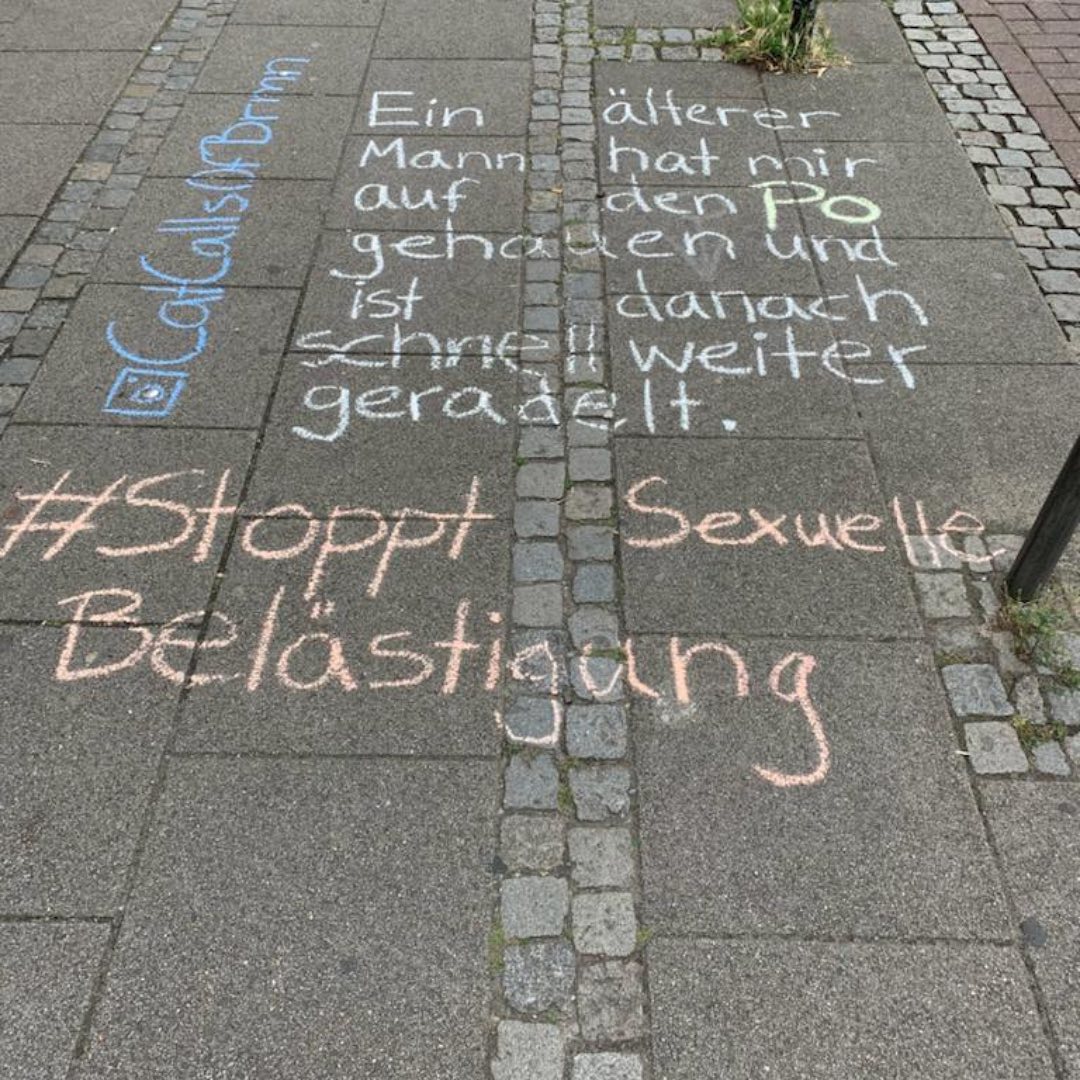 Ein älterer
Mann hat mir
auf den Po
gehauen und
ist danach
schnell weiter
geradelt.
#Stoppt Sexuelle
Belästigung